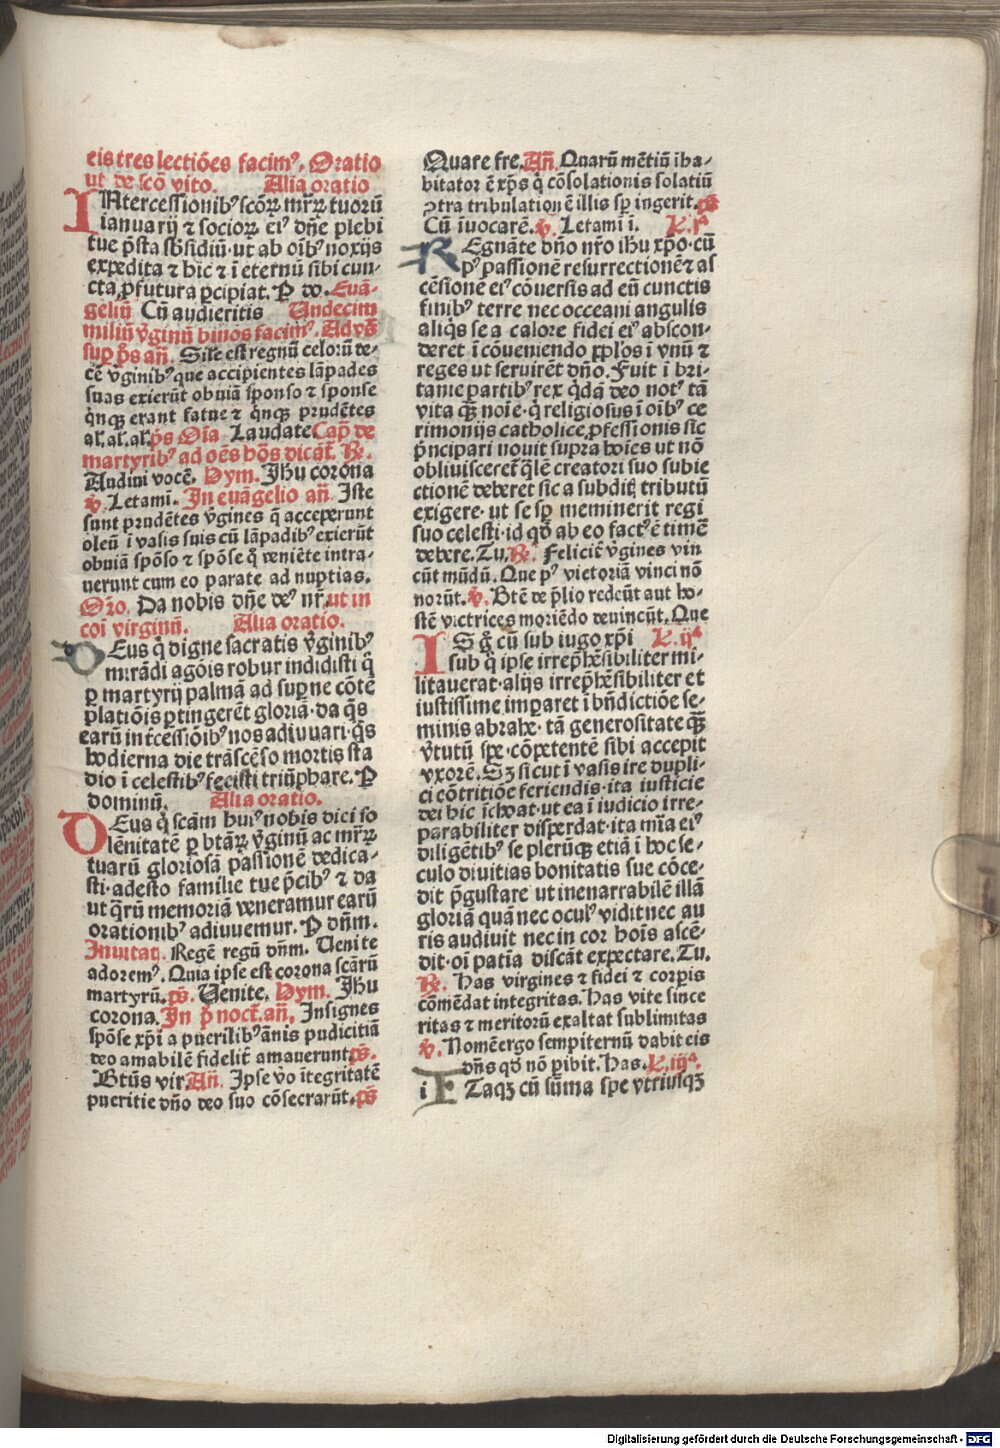 eis tres lectiões facimꝰ. Oratio
ut de scõ vito. Alia oratio
INtercessionibꝰ scõꝝ mr̃ꝝ tuorũ
ianuarij ⁊ socioꝝ eiꝰ dñe plebi
tue p̃sta sbsidiũ·ut ab oĩbꝰ noxijs
expedita ⁊ hic ⁊ ĩ eternũ sibi cun-
cta ꝓfutura ꝑcipiat. P do. Euã-
geliũ Cũ audieritis Undecim
miliũ v̾ginũ binos facimꝰ. Ad vs̃
suꝑ p̃s añ. Sile est regnũ celorũ de-
cẽ v̾ginibꝰ que accipientes lãpades
suas exierũt obuiã sponso ⁊ sponse
q̃nqꝫ erant fatue ⁊ q̃nqꝫ prudẽtes
al̃. al̃. al̃. p̃s Oĩa Laudate Cap̃ de
martyribꝰ ad oẽs hõs dicãt̃. R̃.
Audiui vocẽ. Hym. Jhu corona
v̾. Letami. In euãgelio añ. Iste
sunt prudẽtes v̾gines q̃ acceperunt
oleũ ĩ vasis suis cũ lãpadibꝰ exierũt
obuiã spõso ⁊ spõse q̃ veniẽte intra-
uerunt cum eo parate ad nuptias.
Or̃o. Da nobis dñe deꝰ nr̃. ut in
coĩ virginũ. Alia oratio.
DEus q̃ digne sacratis v̾ginibꝰ
mirãdi agõis robur indidisti q̃
ꝑ martyrij palmã ad suꝑne cõtẽ
platiõis ꝑtingerẽt gloriã·da q̃s
earũ int̃cessiõibꝰ nos adiuuari·q̃s
hodierna die trãscẽso mortis sta
dio ĩ celestibꝰ fecisti triũphare. P
dominũ. Alia oratio.
DEus q̃ scãm huiꝰ nobis diei so
lẽnitatẽ ꝑ btãꝝ v̾ginũ ac mr̃ꝝ
tuarũ gloriosã passionẽ dedica-
sti·adesto familie tue p̃cibꝰ ⁊ da
ut q̃rũ memoriã veneramur earũ
orationibꝰ adiuuemur. P dñm.
Inuitat̃. Regẽ regũ dñm. Uenite
adoremꝰ. Quia ipse est corona scãrũ
martyrũ. p̃s. Uenite. Hym. Jhu
corona. In p̃ noct̃. añ. Insignes
spõse xp̃i a puerilibꝰ ãnis pudicitiã
deo amabilẽ fidelit̃ amauerunt p̃s.
Btũs vir. Añ. Ipse v̾o ĩtegritatẽ
pueritie dño deo suo cõsecrarũt. p̃s
Quare fre. Añ. Quarũ mẽtiũ ĩha-
bitator ẽ xp̃s q̃ cõsolationis solatiũ
ꝯtra tribulationẽ illis sꝑ ingerit. p̃s
Cũ ĩuocarẽ. v̾. Letami ĩ. L. pᵃ
REgnãte dño nr̃o ihu xp̃o·cũ
pꝰ passionẽ resurrectionẽ ⁊ as
cẽsionẽ eiꝰ cõuersis ad eũ cunctis
finibꝰ terre nec occeani angulis
aliq̃s se a calore fidei eiꝰ abscon-
deret ĩ cõueniendo pp̃los ĩ vnũ ⁊
reges ut seruirẽt dño. Fuit ĩ bri-
tanie partibꝰ rex q̃dã deo notꝰ tã
vita q̃ꝫ noĩe·q̃ religiosus ĩ oĩbꝰ ce
rimonijs catholice ꝓfessionis sic
p̃ncipari nouit supra hoĩes ut nõ
obliuisceret̃ q̃lẽ creatori suo subie
ctionẽ deberet sic a subdit̃ tributũ
exigere· ut se sꝑ meminerit regi
suo celesti·id qd̃ ab eo factꝰ ẽ timẽ
debere. Tu. R̃. Felicit̃ v̾gines vin
cũt mũdũ. Que pꝰ victoriã vinci nõ
norũt. v̾. Btẽ de p̃lio redeũt aut ho-
stẽ victrices moriẽdo deuincũt. Que
IS g̃ cũ sub iugo xp̃i L. ijᵃ
sub q̃ ipse irrep̃hẽsibiliter mi-
litauerat·alijs irrep̃hẽsibiliter et
iustissime imꝑaret ĩ bñdictiõe se-
minis abrahe· tã generositate q̃ꝫ
v̾tutũ spe·cõpetentẽ sibi accepit
vxorẽ. Sꝫ sicut ĩ vasis ire dupli-
ci cõtritiõe feriendis·ita iusticie
dei hic ĩchoat·ut ea ĩ iudicio irre-
parabiliter disperdat·ita mĩa eiꝰ
diligẽtibꝰ se plerũqꝫ etiã ĩ hoc se-
culo diuitias bonitatis sue cõce-
dit p̃gustare ut inenarrabilẽ illã
gloriã quã nec oculꝰ vidit nec au
ris audiuit nec in cor hoĩs ascẽ-
dit·oĩ patĩa discãt expectare. Tu.
R̃. Has virgines ⁊ fidei ⁊ corꝑis
cõmẽdat integritas. Has vite since
ritas ⁊ meritorũ exaltat sublimitas
v̾. Nomẽ ergo sempiternũ dabit eis
dñs qd̃ nõ ꝑibit. Has. L. iijᵃ.
i ITaqꝫ cũ sũma spe vtriusqꝫ
Digitalisierung gefördert durch die Deutsche Forschungsgemeinschaft - DFG